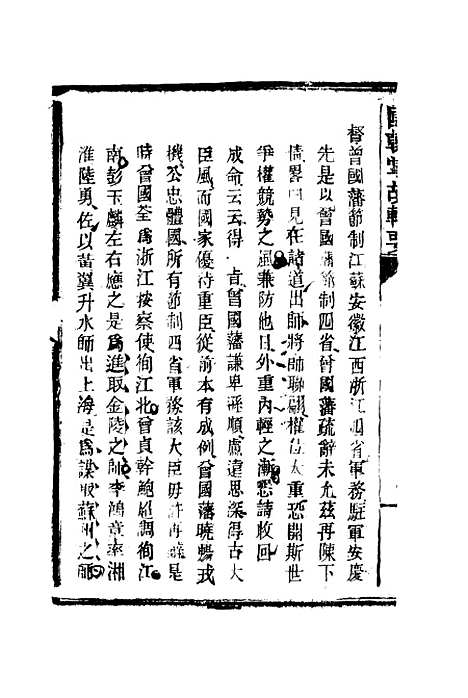 國朝掌故輯要
督曾國藩節制江蘇安徽江西浙江四省軍務駐軍安慶
先是以曾國藩節制四省曾國藩疏辭未允茲再陳下
情畧曰見在諸道出師將帥聯翩權位太重恐開斯世
爭權競勢之風兼防他日外重內輕之漸懇請收回
成命云云得 旨曾國藩謙卑遜順慮遠思深得古大
臣風而國家優待重臣從前本有成例曾國藩曉暢戎
機公忠體國所有節制四省軍務該大臣毋許再辭是
時曾國荃爲浙江按察使徇江北曾貞幹鮑超調徇江
南彭玉麟左右應之是爲進取金陵之師李鴻章率湘
淮陸勇佐以黃翼升水師出上海是爲謀取蘇州之師